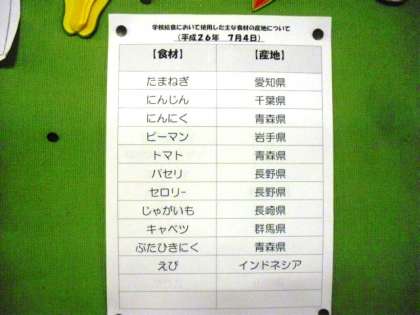 学校給食において使用した主な食材の産地について
(平成26年 7月4日)
【食材】 【産地】
たまねぎ 愛知県
にんじん 千葉県
にんにく 青森県
ピーマン 岩手県
トマト 青森県
パセリ 長野県
セロリー 長野県
じゃがいも 長崎県
キャベツ 群馬県
ぶたひきにく 青森県
えび インドネシア